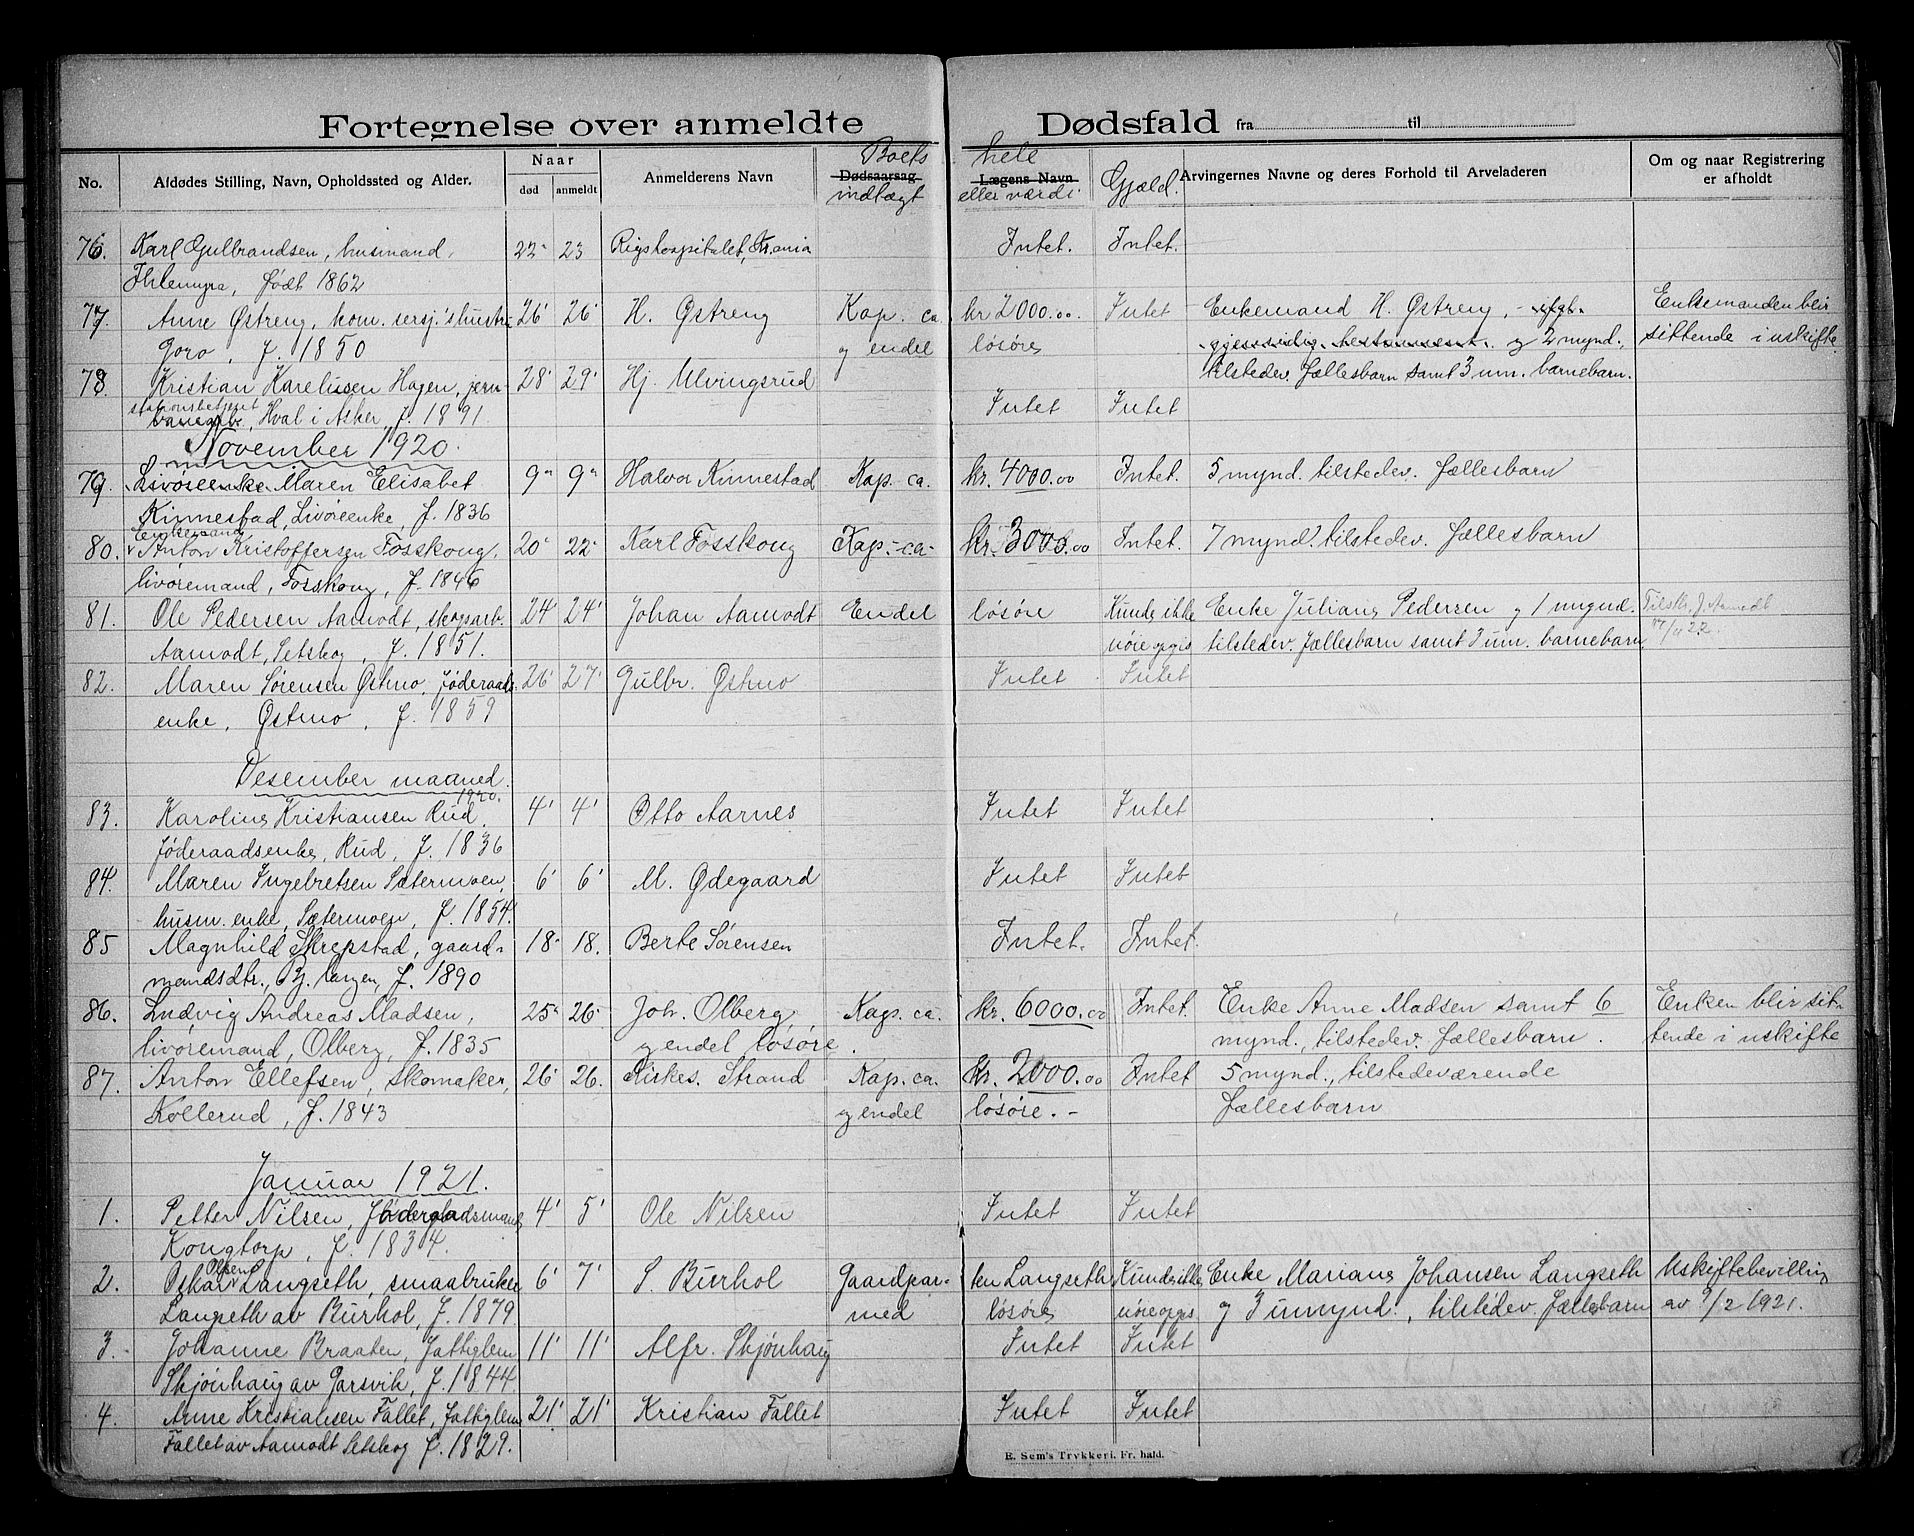 Fortegnelse over anmeldte Dødsfald fra til
No. Afdødes Stilling, Navn, Opholdssted og Alder. Naar død anmeldt Anmelderens Navn Dødsaarsag Boets indtægt Lægens Navn hele eller værdi Gjæld. Arvingernes Navne og deres Forhold til Arveladeren Om og naar Registrering er afholdt
76. Karl Gulbrandsen, husmand, 22 23 Rigshospitalet, Kr.ania Intet. Intet.
Ihlemyra, født 1862
77. Anne Østreng, kom. sersj.'s hustru 26 26 H. Østreng Kap. ca. kr 2000.00 Intet Enkemand H. Østreng, Enkemanden blir
Goro, f. 1850 og endel løsøre og 2 mynd., sittende i uskifte
tilstedev. fællesbarn samt 3 um. barnebarn.
78. Kristian Karelusen Hagen, jern- 28 29 Hj. Ulvingsrud Intet Intet
stationsbetjent
Hval i Asker, f. 1891.
November 1920.
79. Livøreenke Maren Elisabet 9 9 Halvor Kinnestad Kap. ca. kr. 4000.00 Intet. 5 mynd. tilstedev. fællesbarn
Kinnestad, Livøreenke, f. 1836
Enkemand
80. Anton Kristoffersen Fosskong, 20 22 Karl Fosskong Kap. ca. kr. 3000.00 Intet. 7 mynd. tilstedev. fællesbarn
livøremand, Fosskong, f. 1846
81. Ole Pedersen Aamodt, skogsarb. 24 24 Johan Aamodt Endel løsøre Kunde ikke Enke Juliane Pedersen og 1 mynd. Tilsk. J. Aamodt
Aamodt, Setskog, f. 1851. nøie opgis tilstedev. fællesbarn samt 3 um. barnebarn 22.
82. Maren Sørensen Østmo, føderaads- 26 27 Gulbr. Østmo Intet Intet
enke, Østmo, f. 1859
Desember maaned.
1920.
83. Karoline Kristiansen Rud, 4 4 Otto Aarnes Intet Intet
føderaadsenke, Rud, f. 1836
84. Maren Ingebretsen Sætermoen, 6 6 M. Ødegaard Intet Intet
husm. enke, Sætermoen, f. 1854.
85 Magnhild Skrepstad, gaard- 18 18. Berte Sørensen Intet. Intet.
mandsdtr., Bj. f. 1890
86. Ludvig Andreas Madsen, 25 26 Joh. Olberg, Kap. ca. kr. 6000.00 Intet. Enke Anne Madsen samt 6 Enken blir sit-
livøremand, Olberg, f. 1835 og endel løsøre. mynd., tilstedev. fællesbarn. tende i uskifte
87. Anton Ellefsen, skomaker, 26 26. Kirkes. Strand Kap. ca. kr. 2000.00 Intet 5 mynd., tilstedeværende
Kollerud, f. 1843 og endel løsøre. - fællesbarn
Januar 1921.
1. Petter Nilsen, føderaadsmand, 4 5 Ole Nilsen Intet Intet
Kongtorp, f. 1834.
Olsen
2. Oskar Langseth, smaabruker 6 7 S. Buerhol Gaardpar- ten Langseth Kunde ikke Enke Mariane Johansen Langseth Uskiftebevilling
Langseth av Buerhol, f. 1879 med løsøre nøie opgis og 3 umynd., tilstedev. fællesbarn av 9/2 1921.
3. Johanne Braaten, fattiglem 11 11 Alfr. Skjønhaug Intet Intet
Skjønhaug av Garsvik, f. 1844
4. Anne Kristiansen Fallet, fattiglem 21 21 Kristian Fallet Intet Intet
Fallet av Aamodt Setskog f. 1829.
E. Sem's Trykkeri, Fr. hald.